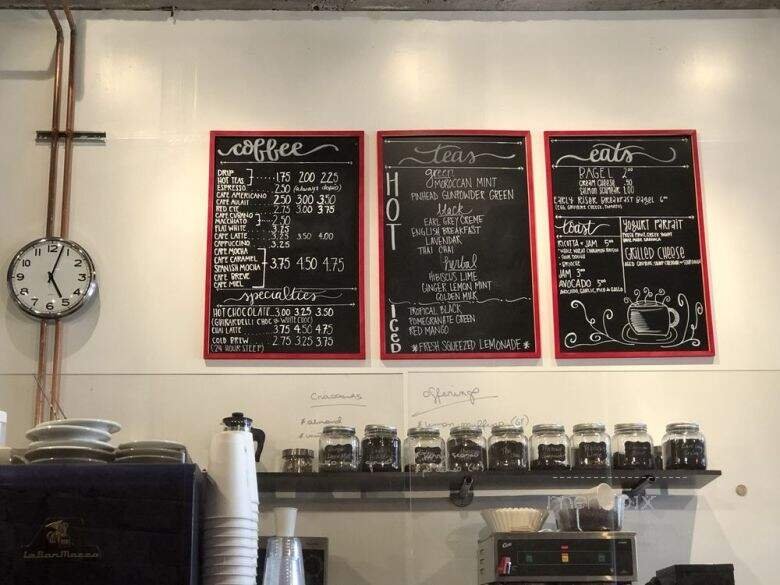 coffee
DRIP 1.75 2.00 2.25
HOT TEAS
ESPRESSO 2.50 (always doppio)
CAFE AMERICANO
CAFE AULAIT 2.50 3.00 3.50
RED EYE 2.75 3.00 3.75
CAFE CUBANO
MACCHIATO 2.50
FLAT WHITE 3.75
CAFE LATTE 3.25 3.50 4.00
CAPPUCCINO 3.25
CAFE MOCHA
CAFE CARAMEL
SPANISH MOCHA 3.75 4.50 4.75
CAFE BREVE
CAFE MIEL
specialties
HOT CHOCOLATE 3.00 3.25 3.50
(GHIRARDELLI CHOC or WHITE CHOC)
CHAI LATTE 3.75 4.50 4.75
COLD BREW 2.75 3.25 3.75
(24 HOUR STEEP)
teas
HOT
green
MOROCCAN MINT
PINHEAD GUNPOWDER GREEN
black
EARL GREY CREME
ENGLISH BREAKFAST
LAVENDAR
THAI CHAI
herbal
HIBISCUS LIME
GINGER LEMON MINT
GOLDEN MILK
ICED
TROPICAL BLACK
POMEGRANATE GREEN
RED MANGO
*FRESH SQUEEZED LEMONADE*
eats
BAGEL 2.00
CREAM CHEESE .50
SALMON SCHMEAR 1.00
EARLY RISER BREAKFAST BAGEL 6
(EGG, GRUYERE CHEESE, TOMATO)
toast
RICOTTA + JAM 5.00
JAM 3.00
AVOCADO 5.00
AVOCADO, GARLIC, PICO de GALLO
YOGURT PARFAIT
GRILLED CHEESE
12
11
10
9
8
7
6
5
4
3
2
1
offerings
*almond
*lemon muffins (GF)
La Marzocco
menupix